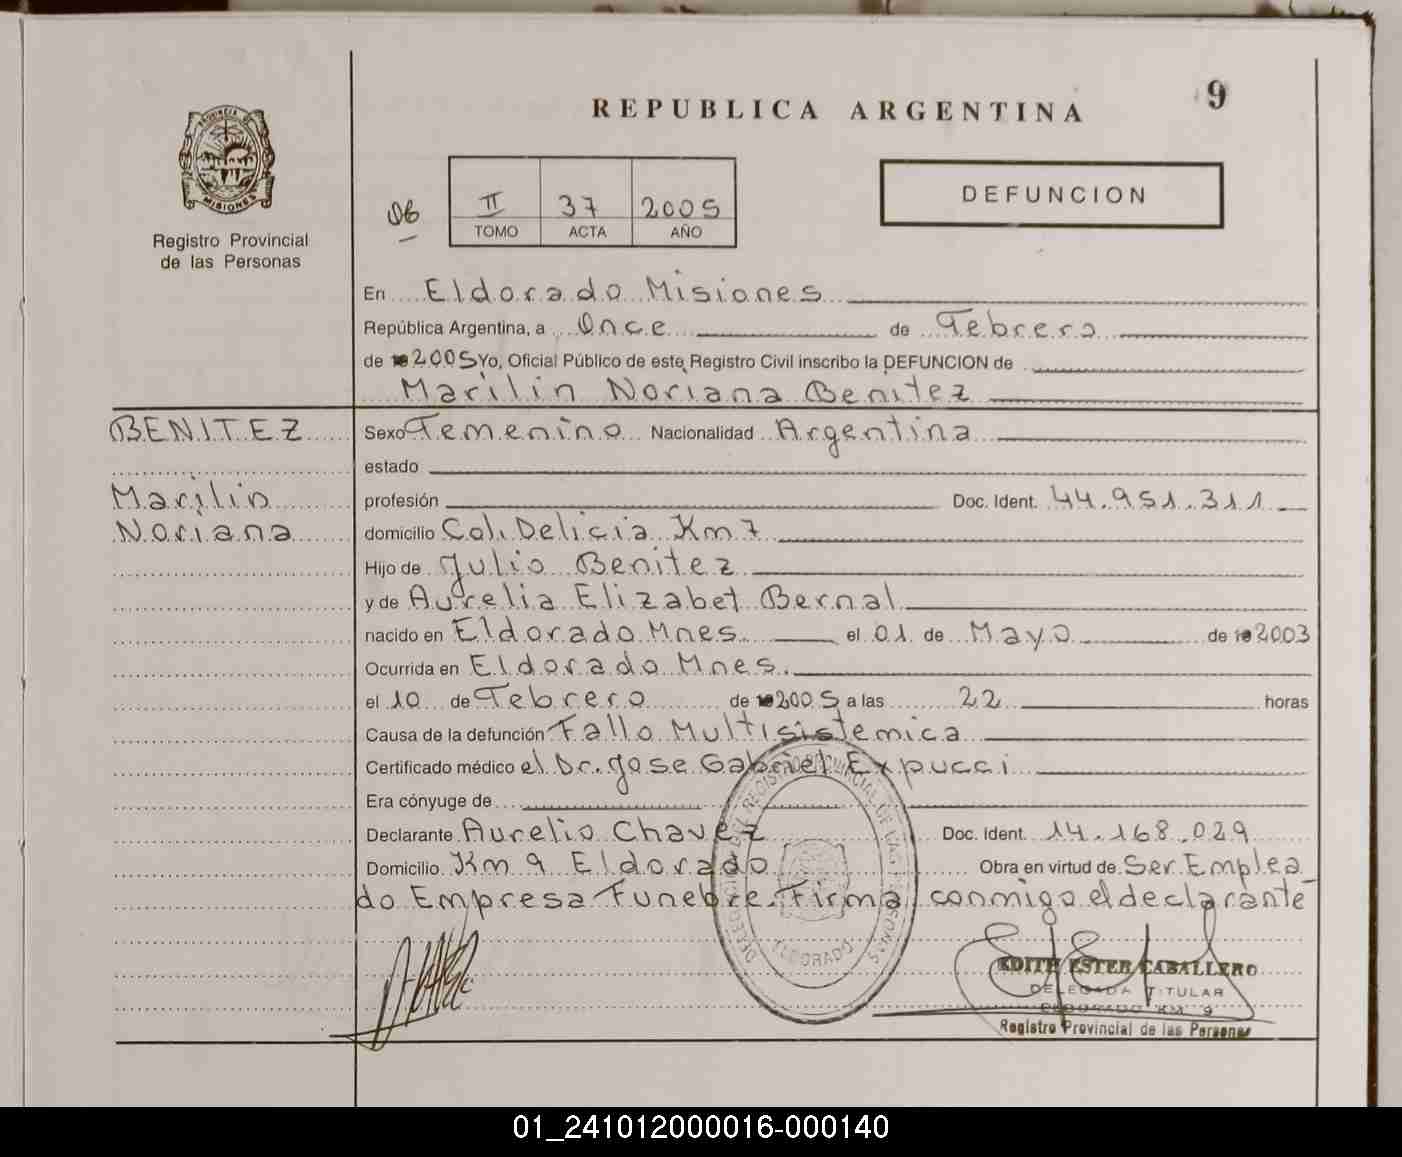 REPUBLICA ARGENTINA
9
PROVINCIA DE MISIONES
Registro Provincial
de las Personas
06
II 37 2005
TOMO ACTA AÑO
DEFUNCION
En Eldorado Misiones
República Argentina, a Once de Febrero
de 2005 Yo, Oficial Público de este Registro Civil inscribo la DEFUNCION de
Marilin Noriana Benitez
BENITEZ
Marilin
Noriana
Sexo Femenino Nacionalidad Argentina
estado
profesión Doc. Ident. 44.951.311
domicilio Col. Delicia Km 7
Hijo de Julio Benitez
y de Aurelia Elizabet Bernal
nacido en Eldorado Mnes. el 01 de Mayo de 2003
Ocurrida en Eldorado Mnes.
el 10 de Febrero de 2005 a las 22 horas
Causa de la defunción Fallo Multisistemica
Certificado médico el Dr. Jose Gabriel Expucci
Era cónyuge de
Declarante Aurelio Chavez Doc. Ident. 14.168.029
Domicilio Km 9 Eldorado Obra en virtud de Ser Emplea_
do Empresa Funebre. Firma conmigo el declarante
ELDORADO
EDITH ESTER CABALLERO
DELEGADA TITULAR
ELDORADO KM 9
Registro Provincial de las Personas
01_241012000016-000140